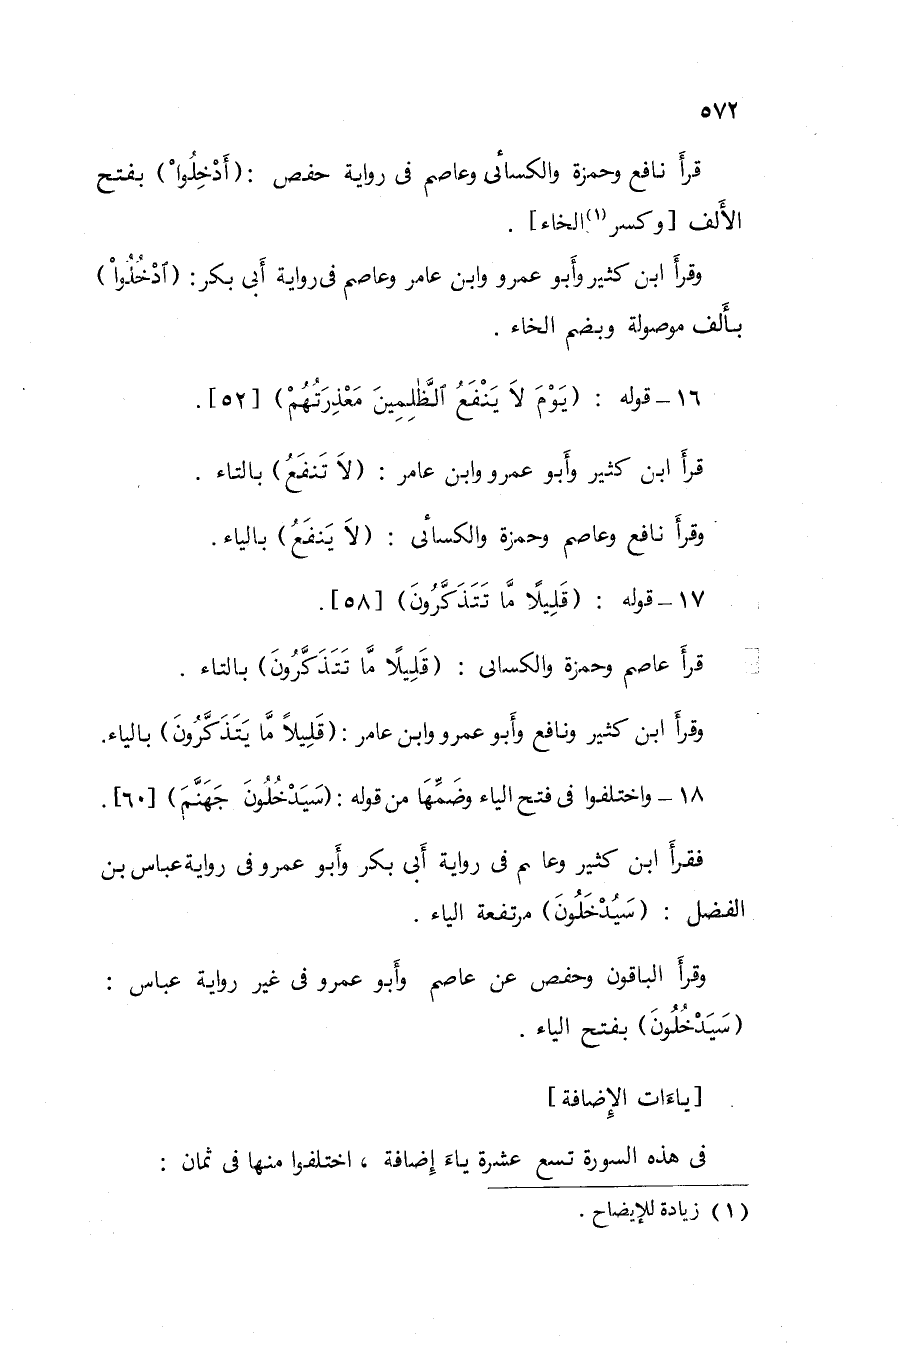 ٥٧٢
قرأ نافع وحمزة والكسائى وعاصم فى رواية حفص : (أَدْخِلُواْ) بفتح
الأَلف [وكسر(١) الخاء] .
وقرأَ ابن كثير وأَبو عمرو وابن عامر وعاصم فى رواية أَبى بكر : (ٱدْخُلُواْ)
بأَلف موصولة وبضم الخاء .
١٦ – قوله : (يَوْمَ لَا يَنْفَعُ ٱلظَّٰلِمِينَ مَعْذِرَتُهُمْ) [٥٢] .
قرأَ ابن كثير وأَبو عمرو وابن عامر : (لَا تَنفَعُ) بالتاء .
وقرأَ نافع وعاصم وحمزة والكسائى : (لَا يَنفَعُ) بالياء .
١٧ – قوله : (قَلِيلًا مَّا تَتَذَكَّرُونَ) [٥٨] .
قرأَ عاصم وحمزة والكسائى : (قَلِيلًا مَّا تَتَذَكَّرُونَ) بالتاء .
وقرأَ ابن كثير ونافع وأَبو عمرو وابن عامر : (قَلِيلاً مَّا يَتَذَكَّرُونَ) بالياء .
١٨ – واختلفوا فى فتح الياء وضَمِّهَا من قوله : (سَيَدْخُلُونَ جَهَنَّمَ) [٦٠] .
فقرأَ ابن كثير وعا م فى رواية أَبى بكر وأَبو عمرو فى رواية عباس بن
الفضل : (سَيُدْخَلُونَ) مرتفعة الياء .
وقرأَ الباقون وحفص عن عاصم وأَبو عمرو فى غير رواية عباس :
(سَيَدْخُلُونَ) بفتح الياء .
[ياءَات الإِضافة]
فى هذه السورة تسع عشرة ياءَ إِضافة ، اختلفوا منها فى ثمان :
(١) زيادة للإيضاح .